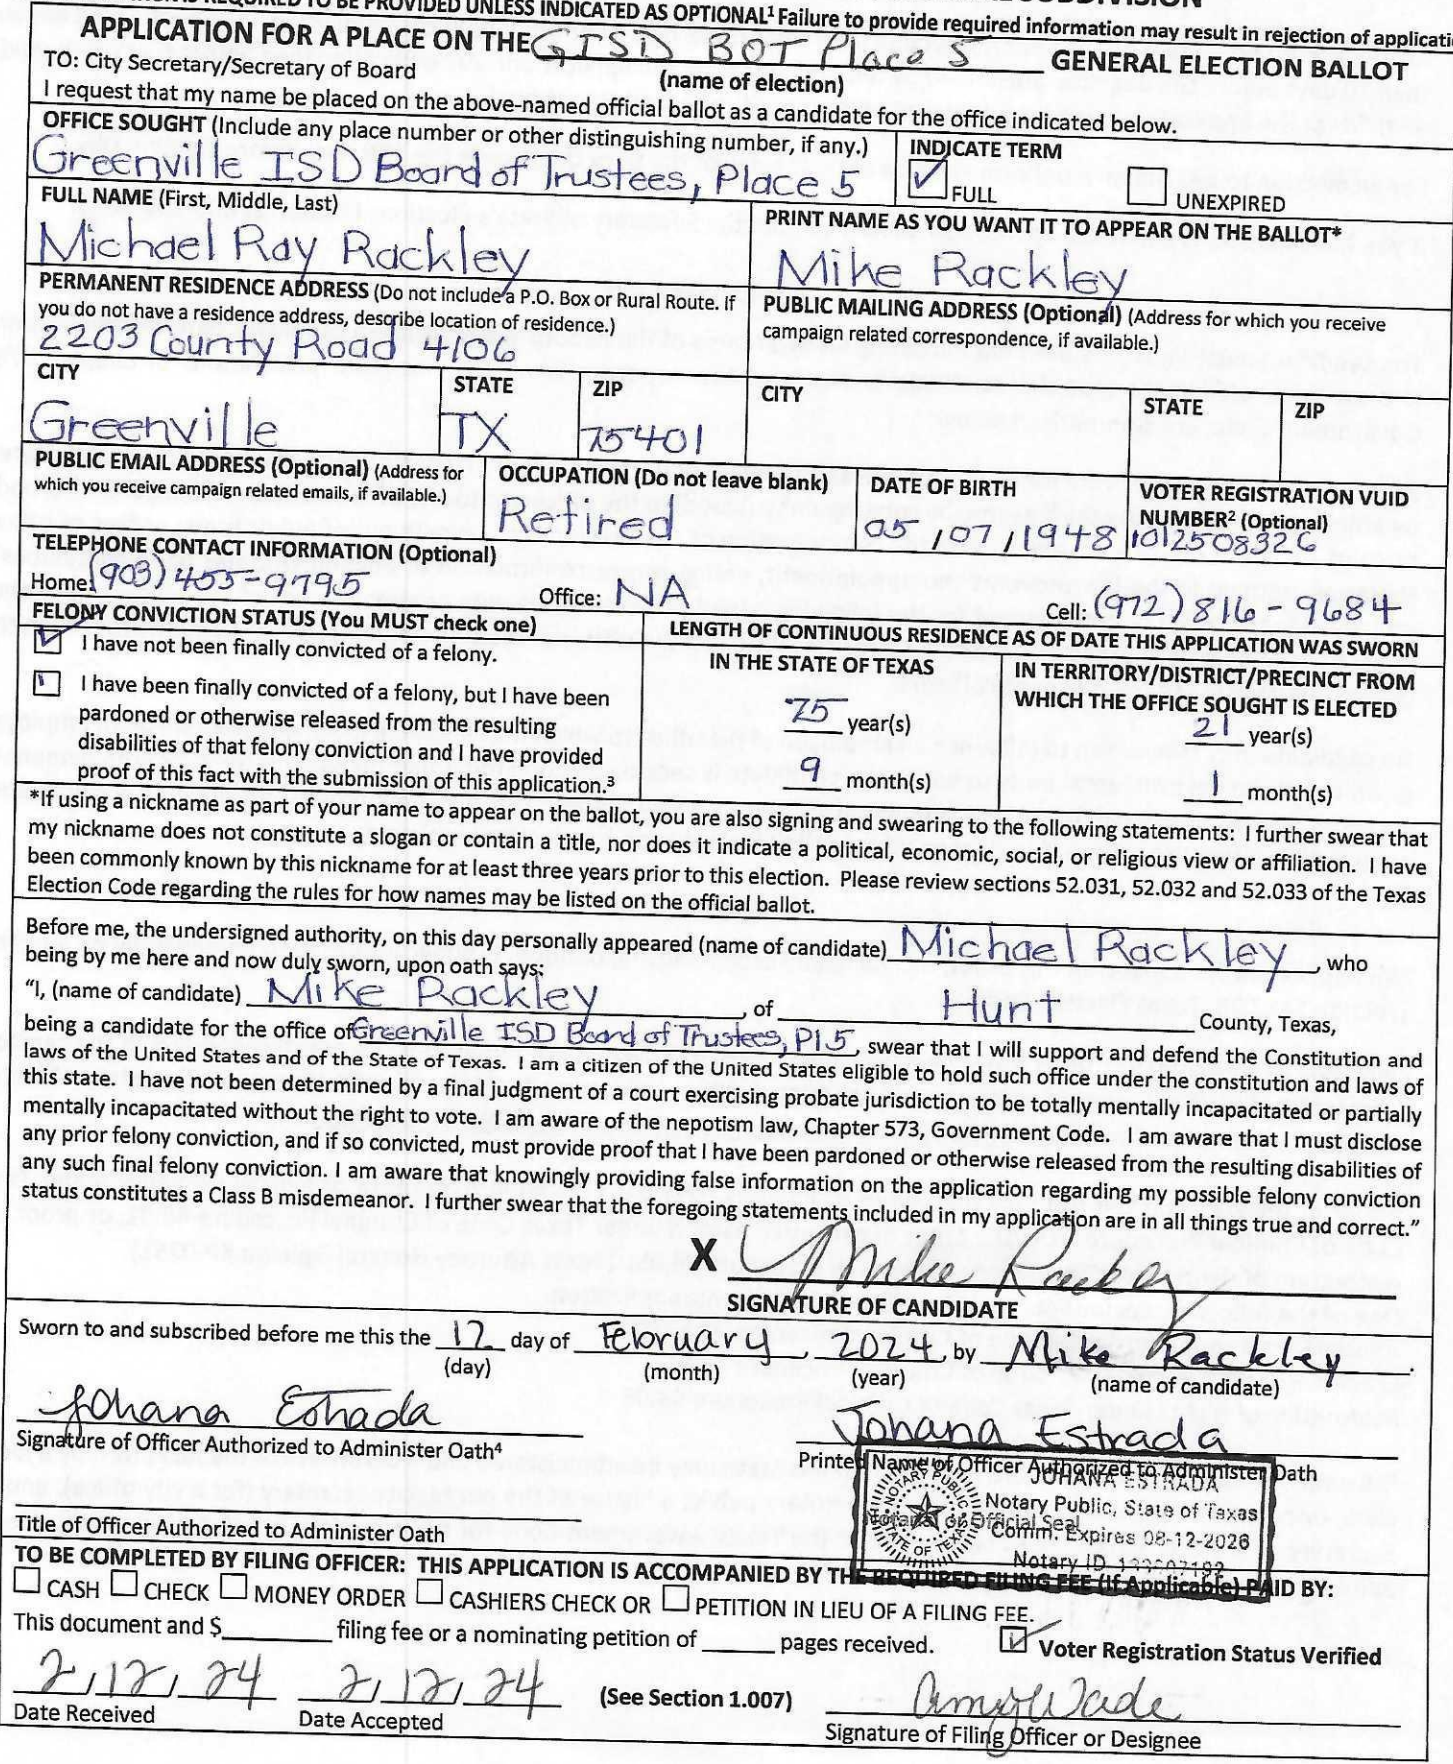 TO BE PROVIDED UNLESS INDICATED AS OPTIONAL¹ Failure to provide required information may result in rejection of applicati
APPLICATION FOR A PLACE ON THE GISD BOT Place 5 GENERAL ELECTION BALLOT
(name of election)
TO: City Secretary/Secretary of Board
I request that my name be placed on the above-named official ballot as a candidate for the office indicated below.
OFFICE SOUGHT (Include any place number or other distinguishing number, if any.)
Greenville ISD Board of Trustees, Place 5
INDICATE TERM
FULL
UNEXPIRED
FULL NAME (First, Middle, Last)
Michael Ray Rackley
PRINT NAME AS YOU WANT IT TO APPEAR ON THE BALLOT*
Mike Rackley
PERMANENT RESIDENCE ADDRESS (Do not include a P.O. Box or Rural Route. If
you do not have a residence address, describe location of residence.)
2203 County Road 4106
PUBLIC MAILING ADDRESS (Optional) (Address for which you receive
campaign related correspondence, if available.)
CITY
Greenville
STATE
TX
ZIP
75401
CITY
STATE
ZIP
PUBLIC EMAIL ADDRESS (Optional) (Address for
which you receive campaign related emails, if available.)
OCCUPATION (Do not leave blank)
Retired
DATE OF BIRTH
05/07/1948
VOTER REGISTRATION VUID
NUMBER² (Optional)
TELEPHONE CONTACT INFORMATION (Optional)
Home: (903) 455-9795
Office: NA
Cell: (972) 816-9684
FELONY CONVICTION STATUS (You MUST check one)
I have not been finally convicted of a felony.
I have been finally convicted of a felony, but I have been
pardoned or otherwise released from the resulting
disabilities of that felony conviction and I have provided
proof of this fact with the submission of this application.³
LENGTH OF CONTINUOUS RESIDENCE AS OF DATE THIS APPLICATION WAS SWORN
IN THE STATE OF TEXAS
75 year(s)
9 month(s)
IN TERRITORY/DISTRICT/PRECINCT FROM
WHICH THE OFFICE SOUGHT IS ELECTED
21 year(s)
1 month(s)
*If using a nickname as part of your name to appear on the ballot, you are also signing and swearing to the following statements: I further swear that
my nickname does not constitute a slogan or contain a title, nor does it indicate a political, economic, social, or religious view or affiliation. I have
been commonly known by this nickname for at least three years prior to this election. Please review sections 52.031, 52.032 and 52.033 of the Texas
Election Code regarding the rules for how names may be listed on the official ballot.
Before me, the undersigned authority, on this day personally appeared (name of candidate) Michael Rackley, who
being by me here and now duly sworn, upon oath says:
"I, (name of candidate) Mike Rackley, of Hunt County, Texas,
being a candidate for the office of Greenville ISD Board of Trustees, Pl 5, swear that I will support and defend the Constitution and
laws of the United States and of the State of Texas. I am a citizen of the United States eligible to hold such office under the constitution and laws of
this state. I have not been determined by a final judgment of a court exercising probate jurisdiction to be totally mentally incapacitated or partially
mentally incapacitated without the right to vote. I am aware of the nepotism law, Chapter 573, Government Code. I am aware that I must disclose
any prior felony conviction, and if so convicted, must provide proof that I have been pardoned or otherwise released from the resulting disabilities of
any such final felony conviction. I am aware that knowingly providing false information on the application regarding my possible felony conviction
status constitutes a Class B misdemeanor. I further swear that the foregoing statements included in my application are in all things true and correct."
X Mike Rackley
SIGNATURE OF CANDIDATE
Sworn to and subscribed before me this the 12 day of February, 2024, by Mike Rackley.
(day) (month) (year) (name of candidate)
Johana Estrada
Signature of Officer Authorized to Administer Oath⁴
Johana Estrada
Printed Name of Officer Authorized to Administer Oath
JOHANA ESTRADA
Notary Public, State of Texas
Notarial or Official Seal
Comm. Expires 08-12-2026
Notary ID
NOTARY PUBLIC
STATE OF TEXAS
Title of Officer Authorized to Administer Oath
TO BE COMPLETED BY FILING OFFICER: THIS APPLICATION IS ACCOMPANIED BY THE REQUIRED FILING FEE (If Applicable) PAID BY:
CASH CHECK MONEY ORDER CASHIERS CHECK OR PETITION IN LIEU OF A FILING FEE.
This document and $ filing fee or a nominating petition of pages received. Voter Registration Status Verified
2/12/24 2/12/24 (See Section 1.007) Amy Wade
Date Received Date Accepted Signature of Filing Officer or Designee